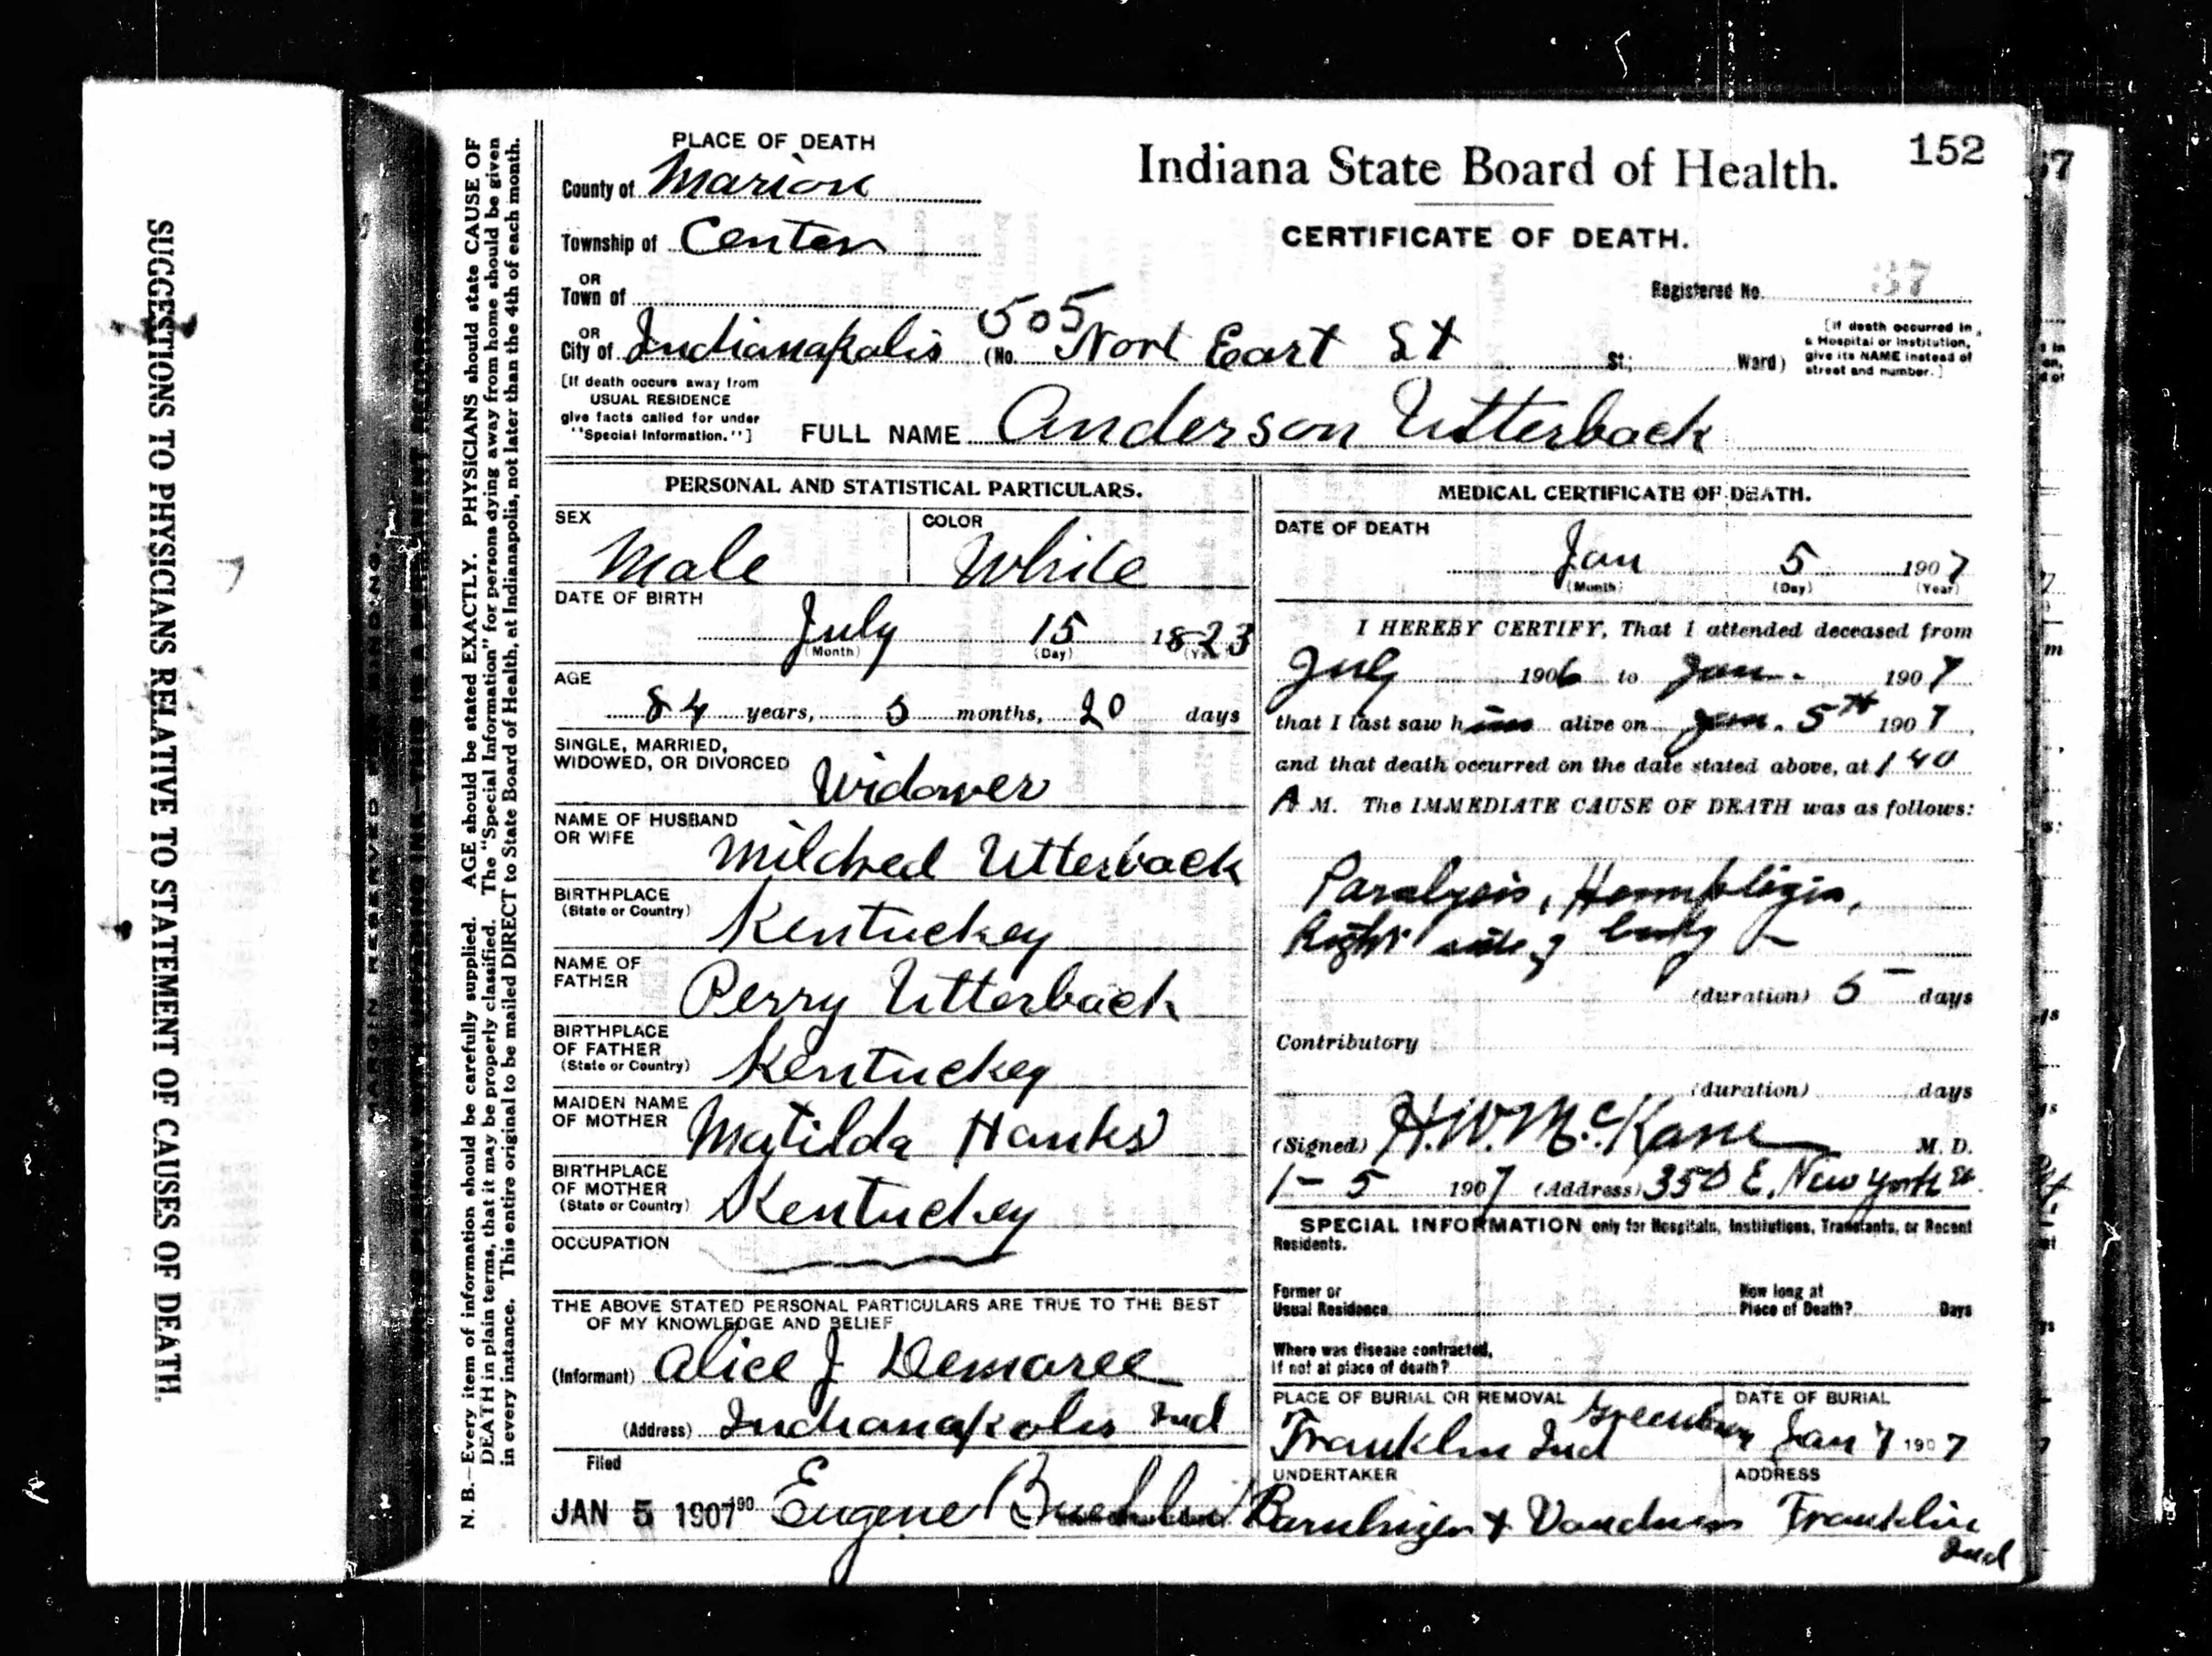 SUGGESTIONS TO PHYSICIANS RELATIVE TO STATEMENT OF CAUSES OF DEATH.
MARGIN RESERVED FOR BINDING.
N. B.—Every item of information should be carefully supplied. AGE should be stated EXACTLY. PHYSICIANS should state CAUSE OF
DEATH in plain terms, that it may be properly classified. The "Special Information" for persons dying away from home should be given
in every instance. This entire original to be mailed DIRECT to State Board of Health, at Indianapolis, not later than the 4th of each month.
152
Indiana State Board of Health.
CERTIFICATE OF DEATH.
Registered No. 37
PLACE OF DEATH
County of Marion
Township of Center
OR
Town of
OR
City of Indianapolis (No. 505 Nort East St St; Ward)
[If death occurred in
a Hospital or Institution,
give its NAME instead of
street and number.]
[If death occurs away from
USUAL RESIDENCE
give facts called for under
"Special Information."]
FULL NAME Anderson Utterback
PERSONAL AND STATISTICAL PARTICULARS.
SEX
Male
COLOR
White
DATE OF BIRTH
July 15 1823
(Month) (Day) (Year)
AGE
84 years, 5 months, 20 days
SINGLE, MARRIED,
WIDOWED, OR DIVORCED
Widower
NAME OF HUSBAND
OR WIFE
Mildred Utterback
BIRTHPLACE
(State or Country)
Kentuckey
NAME OF
FATHER
Perry Utterback
BIRTHPLACE
OF FATHER
(State or Country)
Kentuckey
MAIDEN NAME
OF MOTHER
Matilda Hanks
BIRTHPLACE
OF MOTHER
(State or Country)
Kentuckey
OCCUPATION
THE ABOVE STATED PERSONAL PARTICULARS ARE TRUE TO THE BEST
OF MY KNOWLEDGE AND BELIEF
(Informant) Alice J Demaree
(Address) Indianapolis Ind
Filed
JAN 5 1907 190 Eugene
MEDICAL CERTIFICATE OF DEATH.
DATE OF DEATH
Jan 5 1907
(Month) (Day) (Year)
I HEREBY CERTIFY, That I attended deceased from
July 1906 to Jan. 1907
that I last saw him alive on Jan. 5th 1907,
and that death occurred on the date stated above, at 1 40
A M. The IMMEDIATE CAUSE OF DEATH was as follows:
Paralysis, Hemiplegia,
Right side of body
(duration) 5 days
Contributory
(duration) days
(Signed) H. W. McKane M. D.
1-5 1907 (Address) 350 E. New York St.
SPECIAL INFORMATION only for Hospitals, Institutions, Transients, or Recent
Residents.
Former or
Usual Residence
How long at
Place of Death? Days
Where was disease contracted,
If not at place of death?
PLACE OF BURIAL OR REMOVAL
Greenlawn
Franklin Ind
DATE OF BURIAL
Jan 7 1907
UNDERTAKER
Barnhizer &
ADDRESS
Franklin
Ind